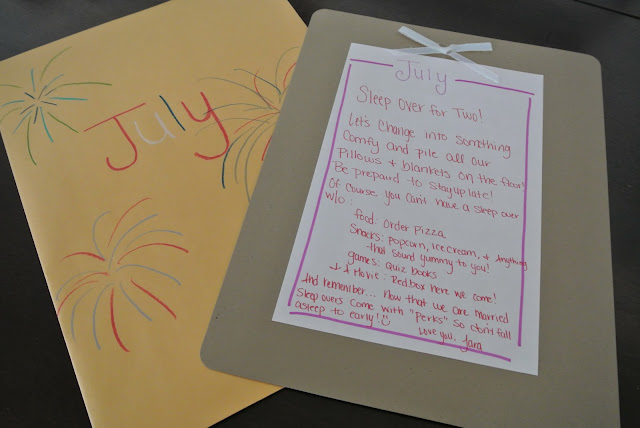 July
July
Sleep over for Two!
Let's Change into Something
Comfy and pile all our
Pillows + blankets on the floor!
Be prepared to stay up late!
Of Course you Can't have a sleep over
w/o:
food: Order Pizza
Snacks: popcorn, ice cream, + Anything
that sound yummy to you!
games: Quiz books
+ A Movie: Redbox here we come!
And remember... Now that we are married
Sleep overs come with "perks" so don't fall
asleep to early! ☺
Love you, Jara